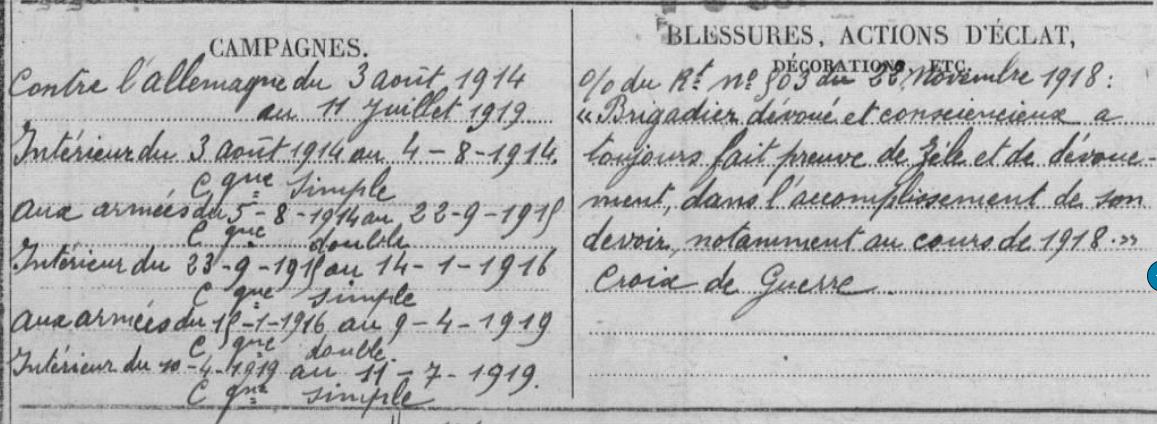 CAMPAGNES.
Contre l'allemagne du 3 août 1914
au 11 Juillet 1919
Intérieur du 3 août 1914 au 4-8-1914.
Cgne simple
aux armées du 5-8-1914 au 22-9-1915
Cgne double
Intérieur du 23-9-1915 au 14-1-1916
Cgne simple
aux armées du 15-1-1916 au 9-4-1919
Cgne double.
Intérieur du 10-4-1919 au 11-7-1919.
Cgne simple
BLESSURES, ACTIONS D'ÉCLAT,
DÉCORATIONS, ETC.
o/o du Rt no 503 du 22 Novembre 1918:
« Brigadier dévoué et consciencieux a
toujours fait preuve de zèle et de dévoue-
ment, dans l'accomplissement de son
devoir, notamment au cours de 1918. »
Croix de Guerre.